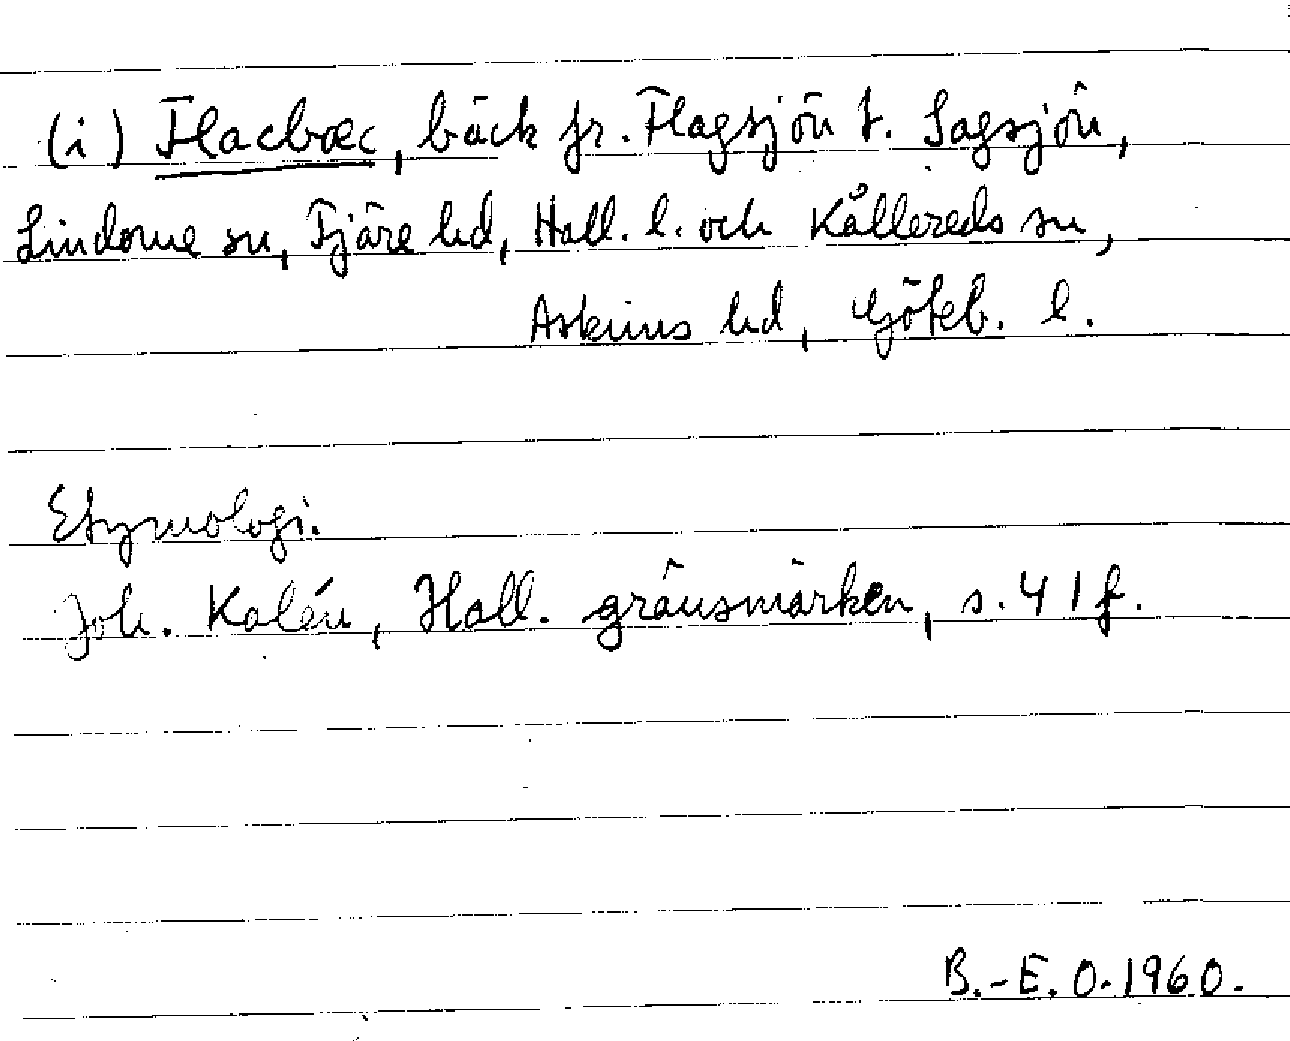 (i) Flacbæc, bäck fr. Flagsjön t. Sagsjön,
Lindome sn, Fjäre hd, Hall. l. och Kållereds sn,
Askims hd, Göteb. l.
Etymologi.
Joh. Kalén, Hall. gränsmärken, s. 41 f.
B.-E. O. 1960.